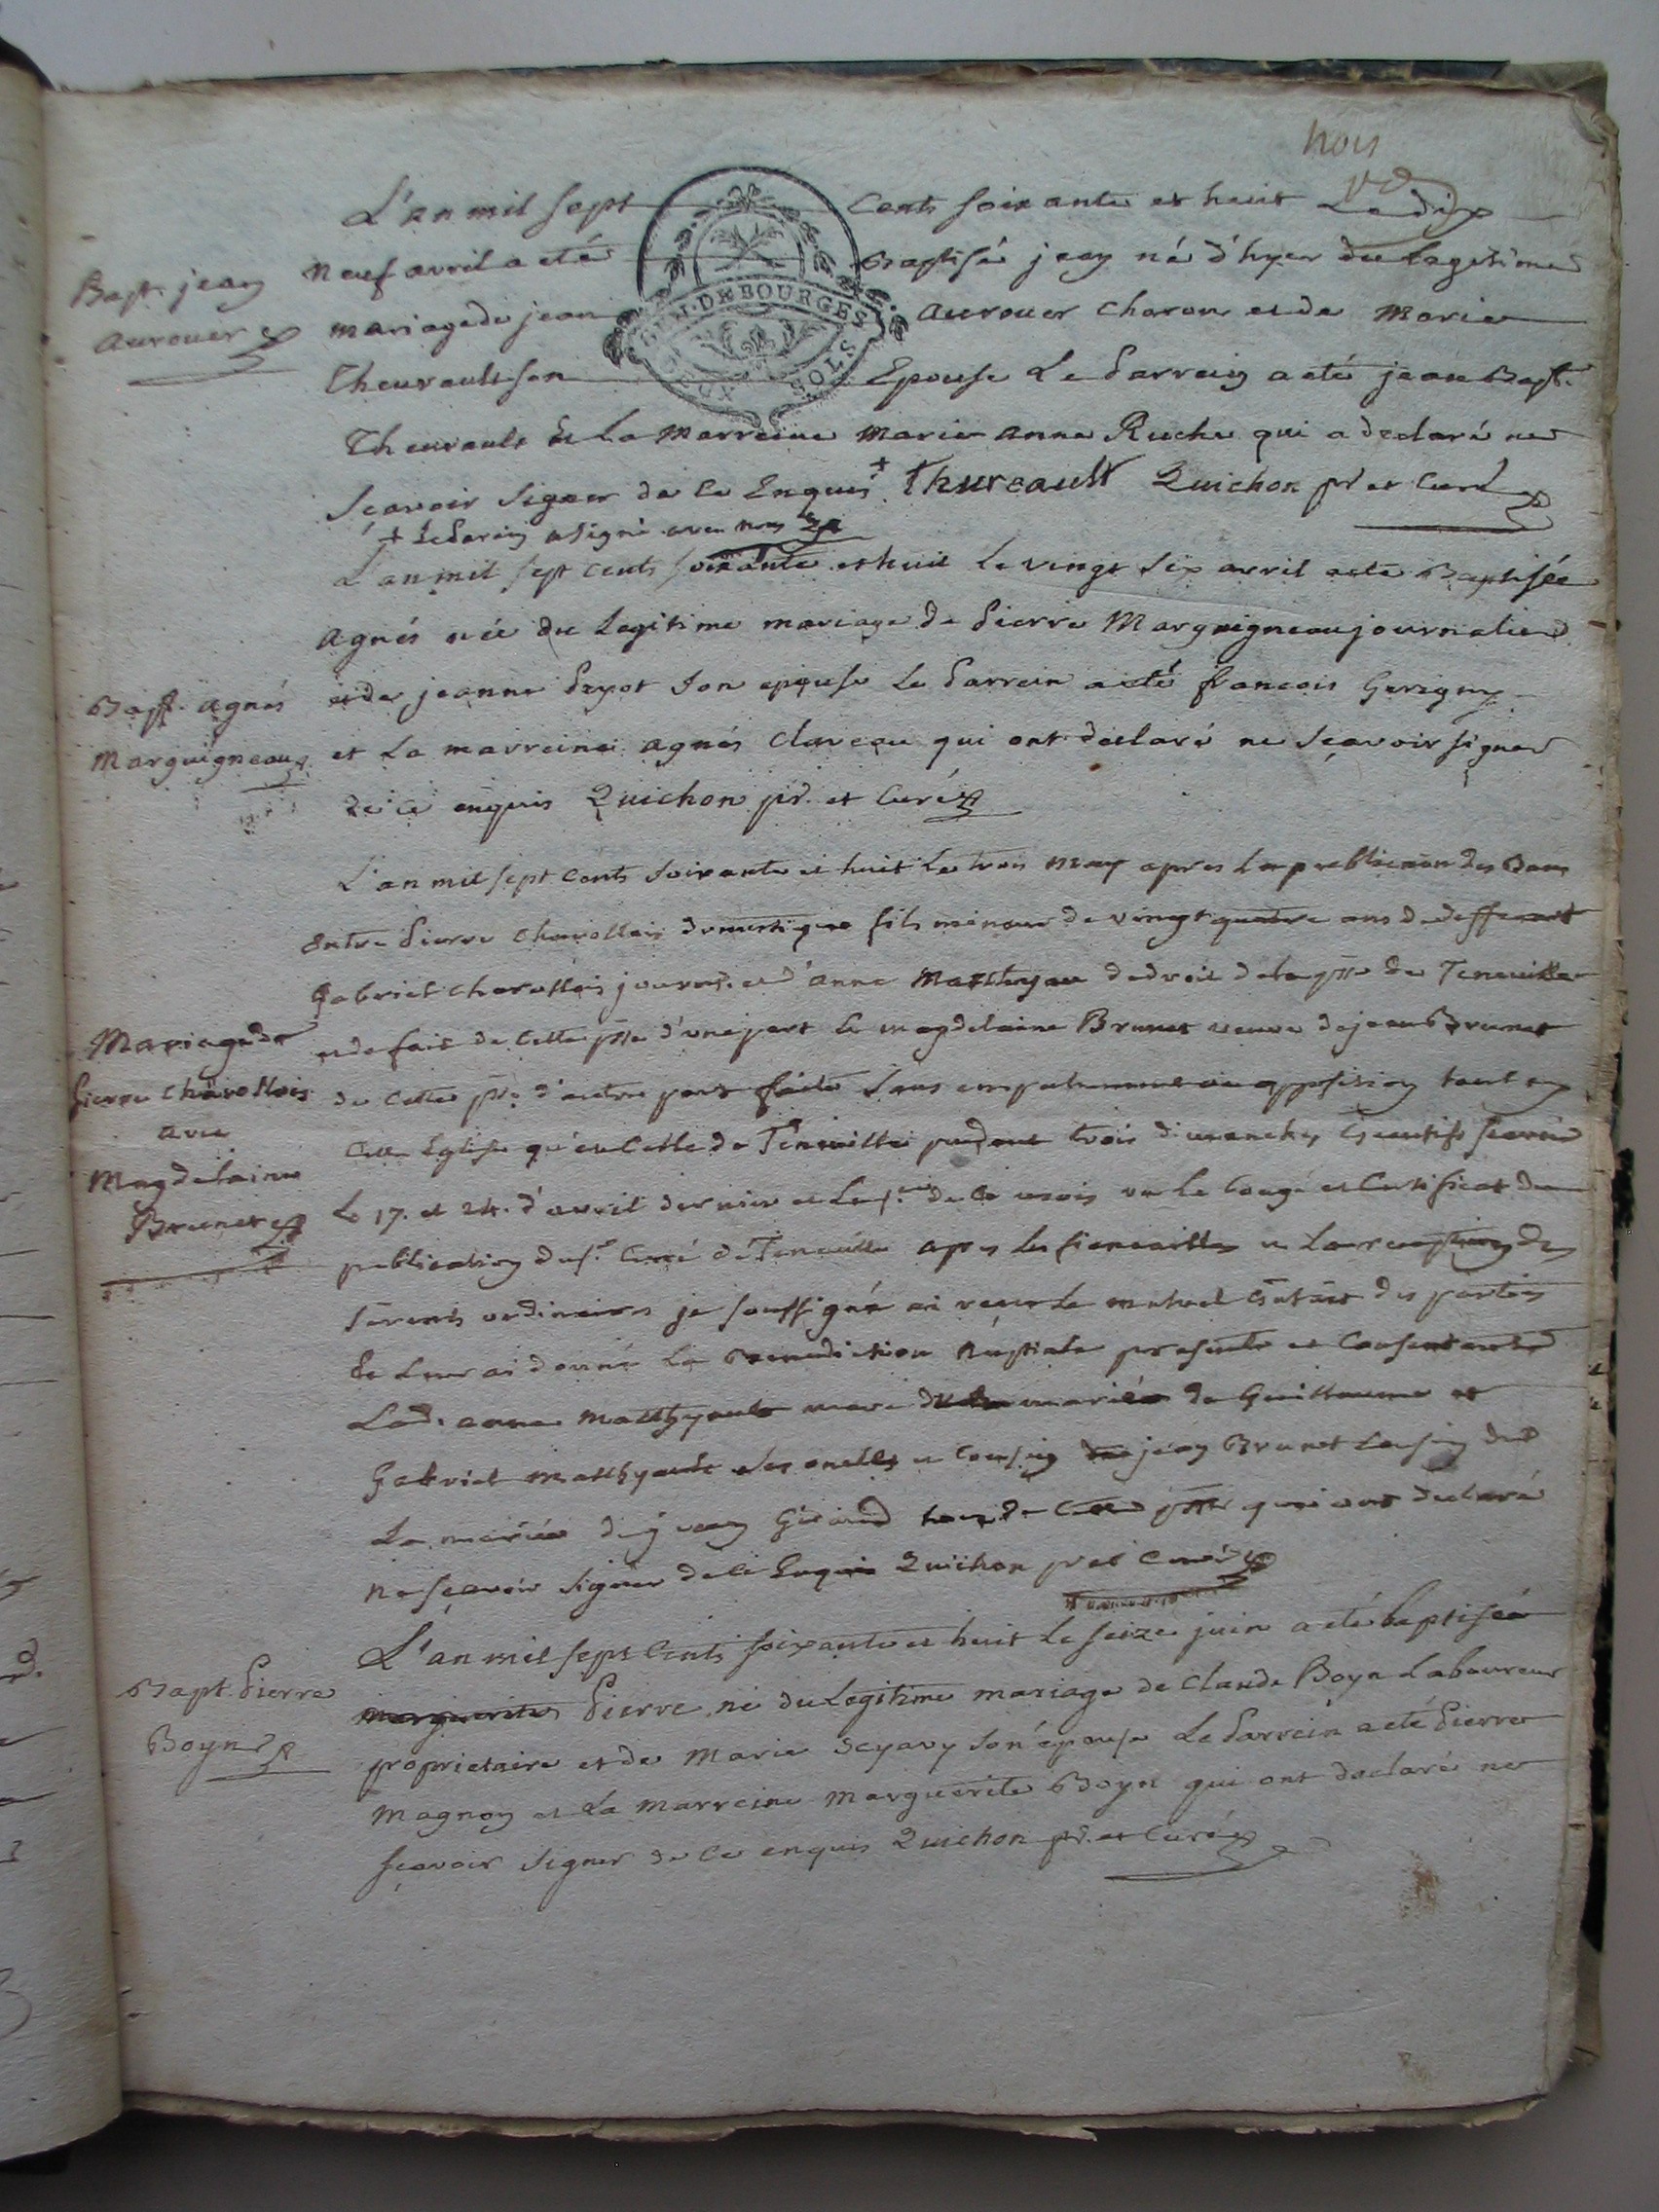 trois
L'an mil sept cents soixante et huit Le dix
neuf avril a eté Baptisé jean né d'hyer du Legitime
Bapt. jean
Aurouer
mariage de jean Aurouer charon et de Marie
GEN. DE BOURGES
DEUX SOLS
Theurault son Epouse Le Parrein a eté jean Bapt.
Theurault et La Marreine Marie Anne Ruche qui a declaré ne
Scavoir Signer de ce Enquis + Thureault Quichon ptr et Curé
+ Le Parein a signé avec nous
L'an mil sept cents soixante et huit Le vingt six avril a eté Baptisée
Agnés née du Legitime mariage de Pierre Marguigneau journalier
et de jeanne son epouse Le Parrein a eté francois Gerigny
Bapt. Agnés
Marguigneau
et La marreine Agnés Claveau qui ont declaré ne Sçavoir signer
de ce enquis Quichon ptr. et Curé
L'an mil sept cents soixante et huit Le trois May apres La publication des Bans
Entre Pierre Charollois domestique fils mineur de vingt quatre ans de deffunt
Gabriel Charollois journ. et d'Anne Matthyau de droit de la psse de Teneuille
et de fait de cette psse d'une part et Magdelaine Brunet veuve de jean Brunet
Mariage de
Pierre Charollois
avec
Magdelaine
Brunet
de cette psse d'autre part faite Sans empechement ni opposition tant en
cette Eglise qu'en celle de Teneuille pendant trois dimanches consecutifs scavoir
Le 17. et 24. d'avril dernier et Le 1.er de ce mois vu Le Congé et Certificat de
publication du S.r Curé de Teneuille apres les fiancailles et La reception des
Serments ordinaires je soussigné ai recu Le mutuel des parties
et Leur ai donné La Benediction Nuptiale presente et Consentante
Lad. anne Matthyault mere du marié de Guillaume et
Gabriel Matthyault Ses oncles et Cousin jean Brunet Cousin de
La mariée de jean Giraud de cette psse qui ont declaré
ne Sçavoir Signer de ce Enquis Quichon ptr et Curé
L'an mil sept Cents soixante et huit Le seize juin a eté baptisé
Bapt. Pierre
Boyn
marguerite Pierre né du Legitime mariage de Claude Boyn Laboureur
proprietaire et de Marie son epouse Le Parrein a eté Pierre
Magnon et La Marreine Marguerite Boyn qui ont declaré ne
sçavoir Signer de ce enquis Quichon ptr. et Curé